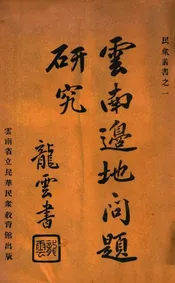 民衆叢書之一
雲南邊地問題
研究
龍雲書
龍雲
雲南省立昆華民衆教育館出版